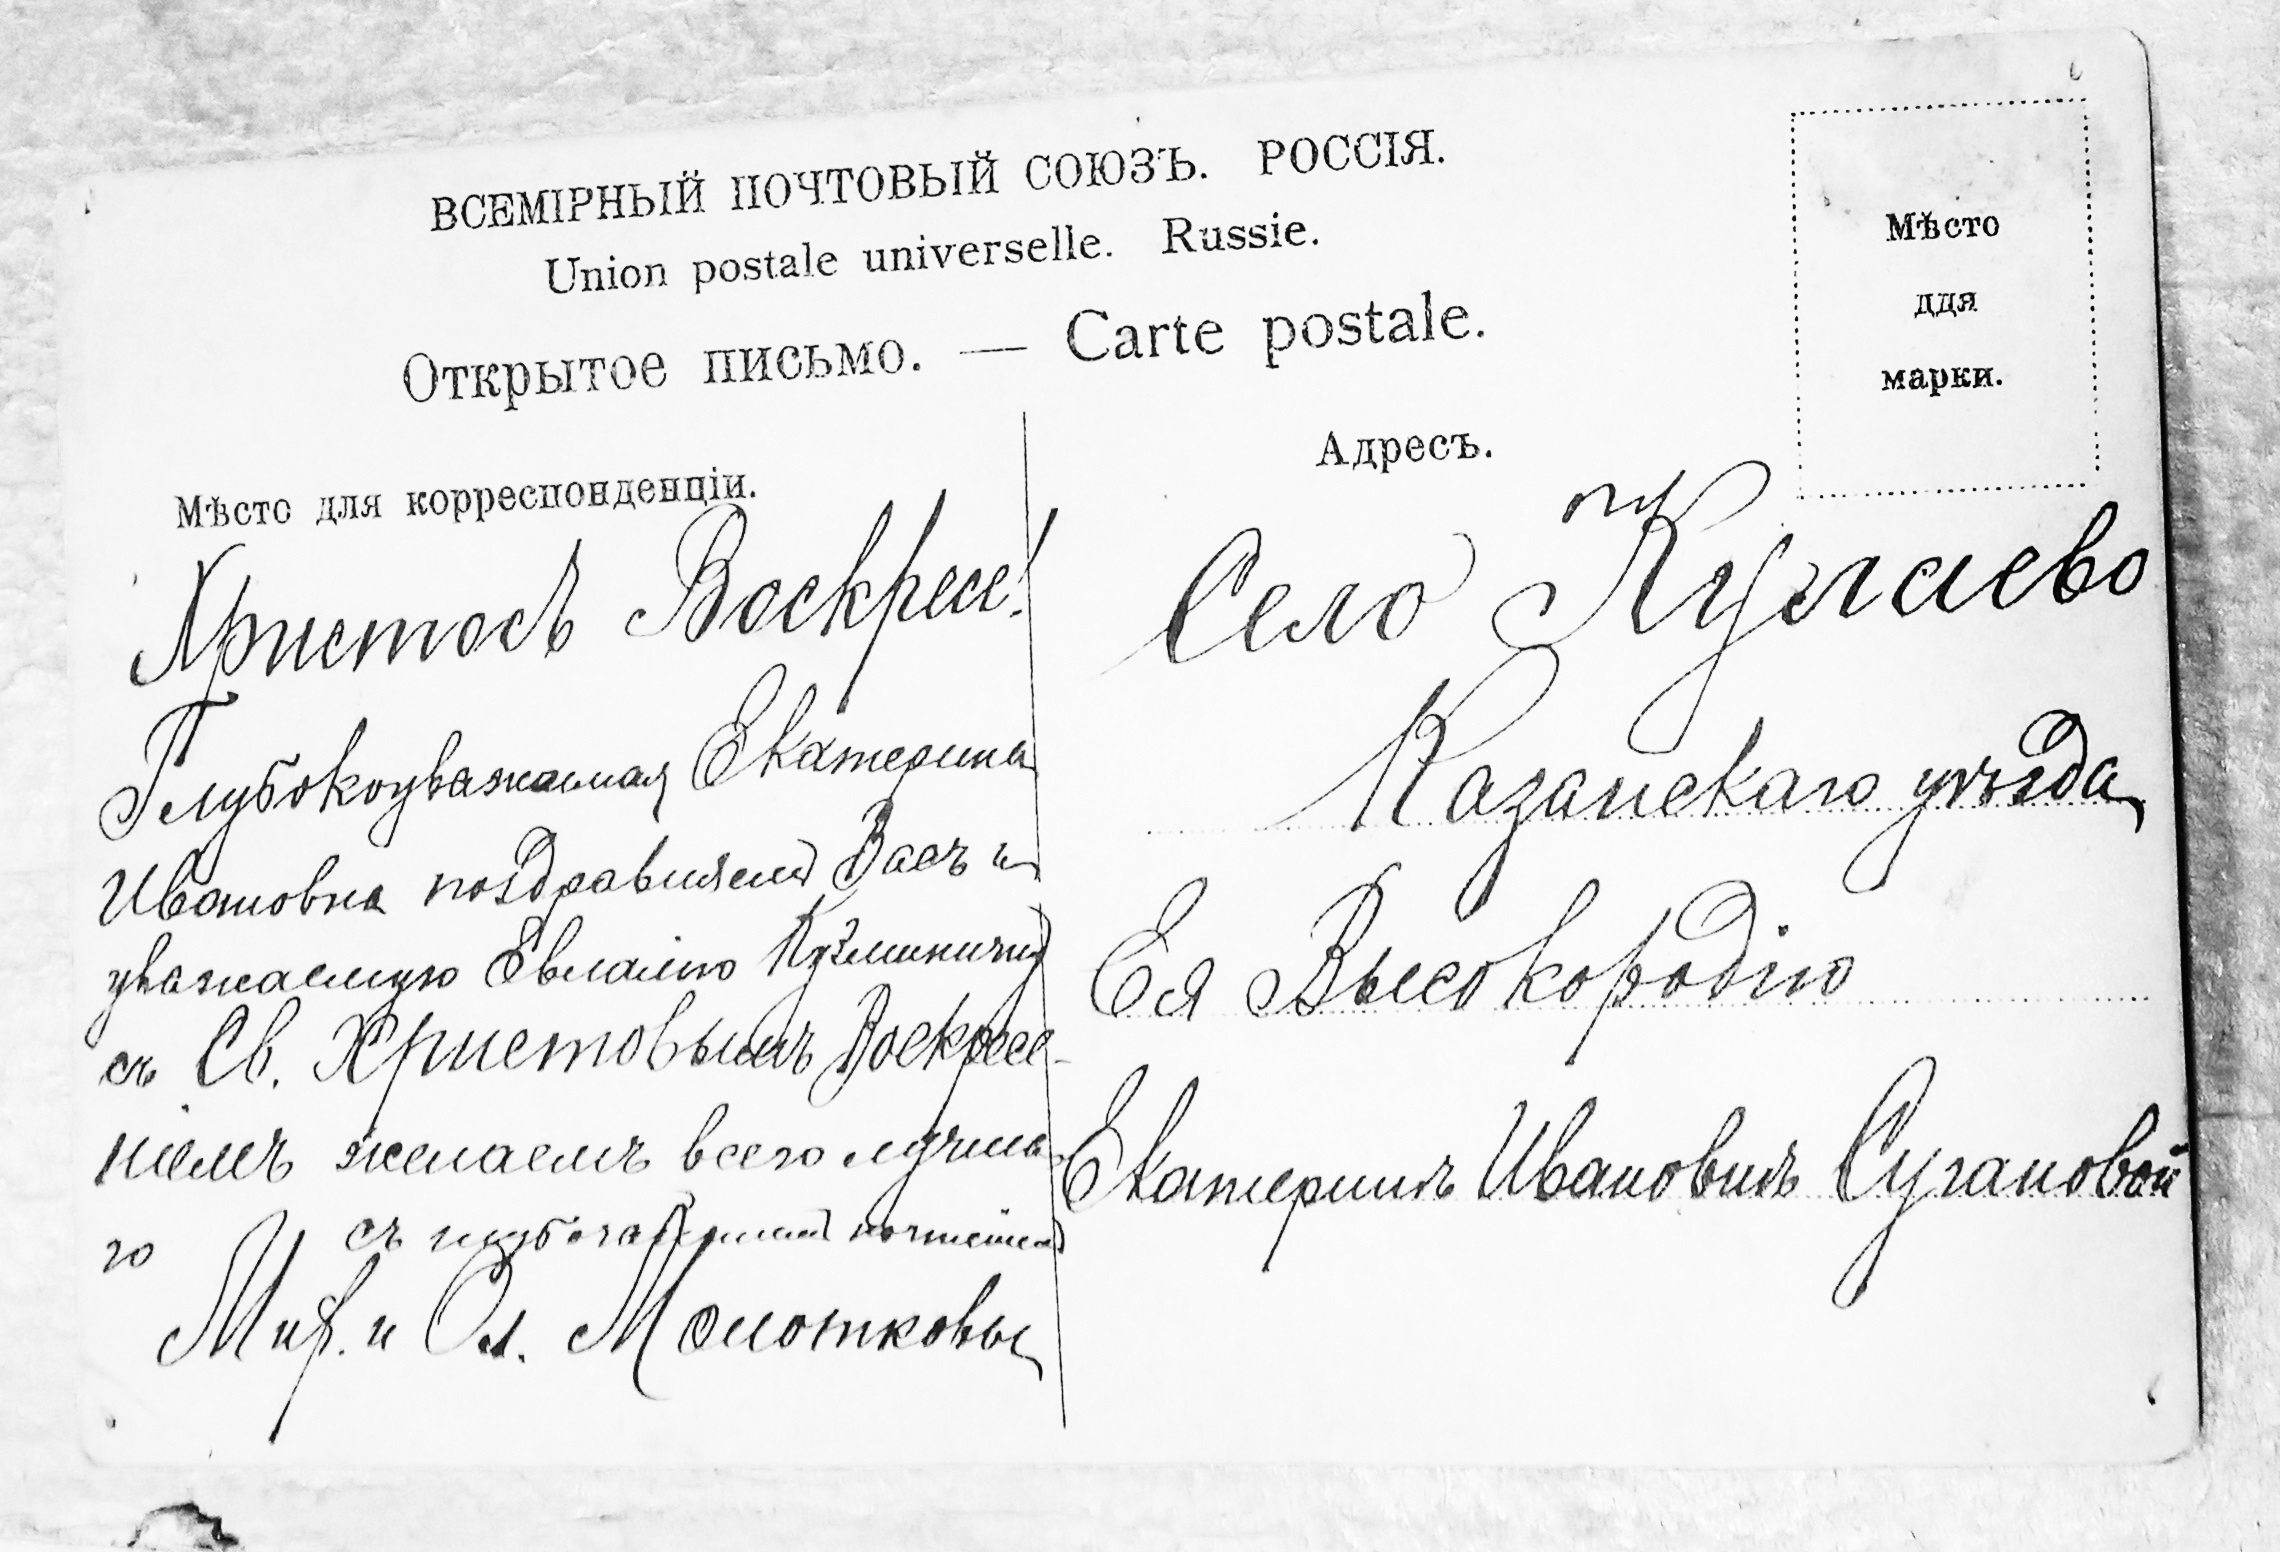 ВСЕМІРНЫЙ ПОЧТОВЫЙ СОЮЗЪ. РОССІЯ.
Union postale universelle. Russie.
Открытое письмо. — Carte postale.
Мѣсто
для
марки.
Мѣсто для корреспонденціи.
Христосъ Воскресе!
Глубокоуважаемая Екатерина
Ивановна поздравляемъ Васъ и
уважаемую Евлалію Кузминичну
съ Св. Христовымъ Воскресе-
ніемъ желаемъ всего лучша-
го съ почтеніемъ
и Ол. Молотковы
Адресъ.
Село Кулаево
Казанскаго уѣзда
Ея Высокородію
Екатеринѣ Ивановнѣ Сугановой